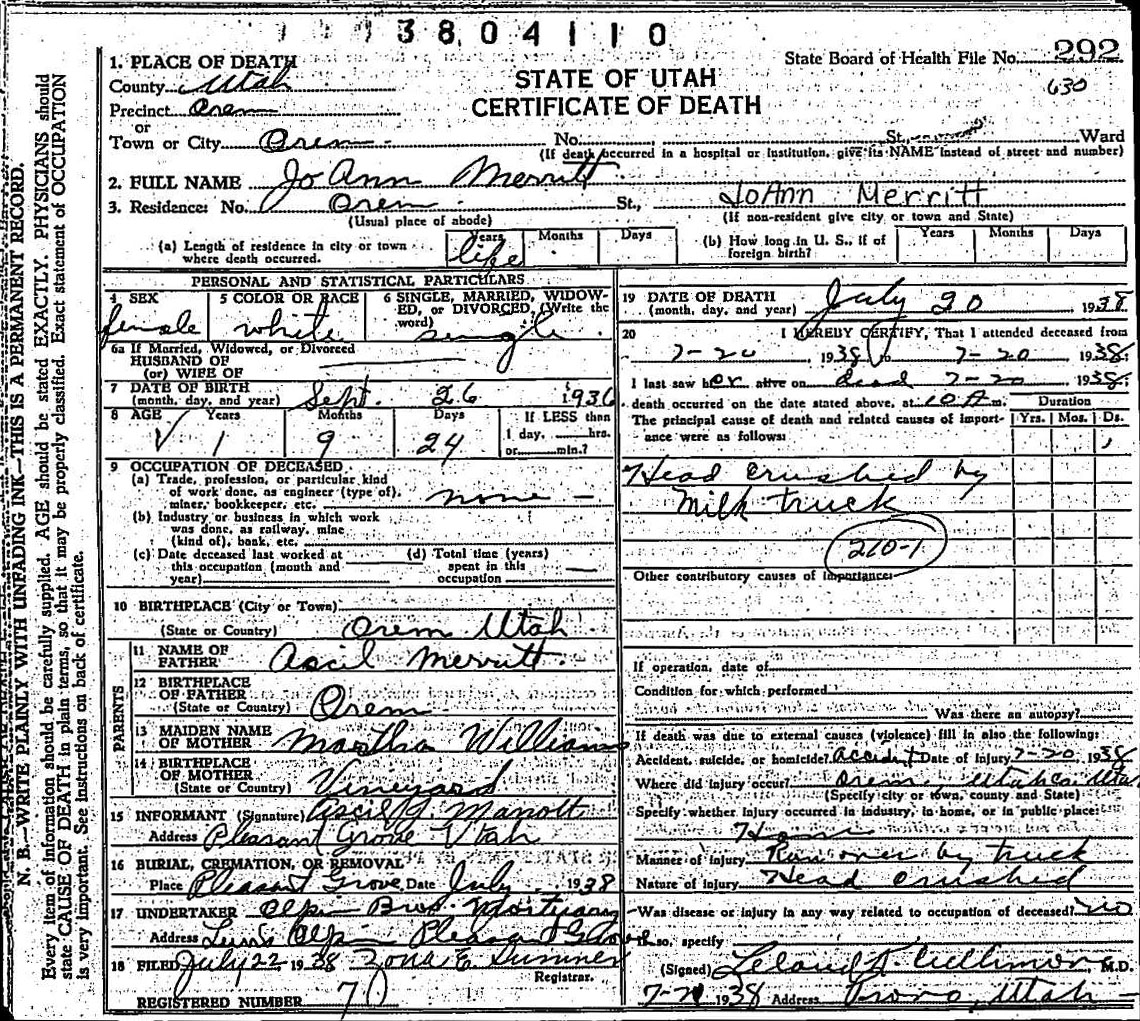 3804110
State Board of Health File No. 292
630
STATE OF UTAH
CERTIFICATE OF DEATH
1. PLACE OF DEATH
County Utah
Precinct Orem
or
Town or City Orem No. St. Ward
(If death occurred in a hospital or institution, give its NAME instead of street and number)
2. FULL NAME Jo Ann Merritt
3. Residence: No. Orem St., JoAnn Merritt
(Usual place of abode) (If non-resident give city or town and State)
(a) Length of residence in city or town where death occurred. Years life Months Days
(b) How long in U. S., if of foreign birth? Years Months Days
PERSONAL AND STATISTICAL PARTICULARS
4 SEX female
5 COLOR OR RACE white
6 SINGLE, MARRIED, WIDOWED, OR DIVORCED, (Write the word) single
6a If Married, Widowed, or Divorced
HUSBAND OF
(or) WIFE OF
7 DATE OF BIRTH (month, day, and year) Sept. 26 1936
8 AGE Years 1 Months 9 Days 24 If LESS than 1 day, hrs. or min.?
9 OCCUPATION OF DECEASED
(a) Trade, profession, or particular kind of work done, as engineer (type of), miner, bookkeeper, etc. none
(b) Industry or business in which work was done, as railway, mine (kind of), bank, etc.
(c) Date deceased last worked at this occupation (month and year)
(d) Total time (years) spent in this occupation
10 BIRTHPLACE (City or Town)
(State or Country) Orem Utah
PARENTS
11 NAME OF FATHER Ascil Merritt
12 BIRTHPLACE OF FATHER
(State or Country) Orem
13 MAIDEN NAME OF MOTHER Martha Williams
14 BIRTHPLACE OF MOTHER
(State or Country) Vineyard
15 INFORMANT (Signature) Ascil
Address Pleasant Grove Utah
16 BURIAL, CREMATION, OR REMOVAL
Place Pleasant Grove, Date July 1938
17 UNDERTAKER Olpin Bros. Mortuary
Address Olpin Pleasant Grove
18 FILED July 22 1938 Zona E Sumner
Registrar.
REGISTERED NUMBER 70
19 DATE OF DEATH (month, day, and year) July 20 1938
20 I HEREBY CERTIFY, That I attended deceased from
7-20, 1938, to 7-20 1938
I last saw her alive on dead 7-20 1938
death occurred on the date stated above, at 10 A m.
The principal cause of death and related causes of importance were as follows: Duration Yrs. Mos. Ds.
Head crushed by
Milk truck
210-1
Other contributory causes of importance:
If operation, date of
Condition for which performed
Was there an autopsy?
If death was due to external causes (violence) fill in also the following:
Accident, suicide, or homicide? accident Date of injury 7-20 1938
Where did injury occur? Orem Utah Co. Utah
(Specify city or town, county and State)
Specify whether injury occurred in industry, in home, or in public place:
Home
Manner of injury Run over by truck
Nature of injury Head crushed
Was disease or injury in any way related to occupation of deceased? no
If so, specify
(Signed) Leland K. Cullimore M.D.
7-21 1938 Address Provo, Utah
N. B.—WRITE PLAINLY WITH UNFADING INK—THIS IS A PERMANENT RECORD.
Every item of information should be carefully supplied. AGE should be stated EXACTLY. PHYSICIANS should
state CAUSE OF DEATH in plain terms, so that it may be properly classified. Exact statement of OCCUPATION
is very important. See instructions on back of certificate.